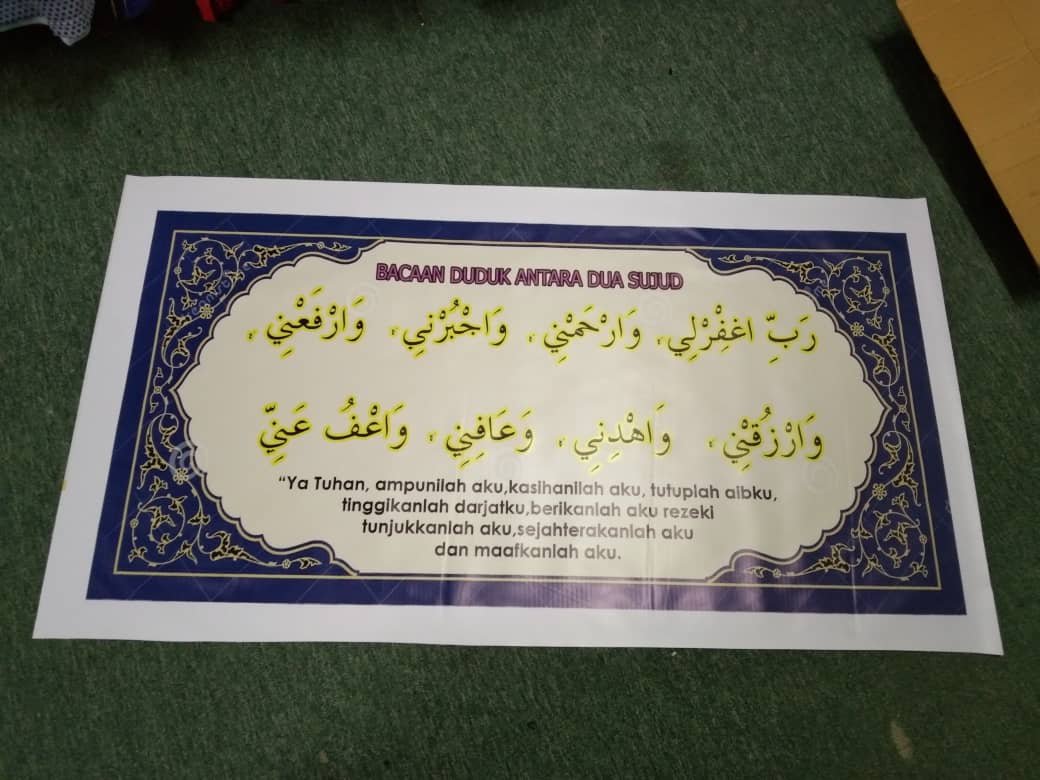 BACAAN DUDUK ANTARA DUA SUJUD
رَبِّ اغْفِرْلِي، وَارْحَمْنِي، وَاجْبُرْنِي، وَارْفَعْنِي،
وَارْزُقْنِي، وَاهْدِنِي، وَعَافِنِي، وَاعْفُ عَنِّي
“Ya Tuhan, ampunilah aku,kasihanilah aku, tutuplah aibku,
tinggikanlah darjatku,berikanlah aku rezeki
tunjukkanlah aku,sejahterakanlah aku
dan maafkanlah aku.